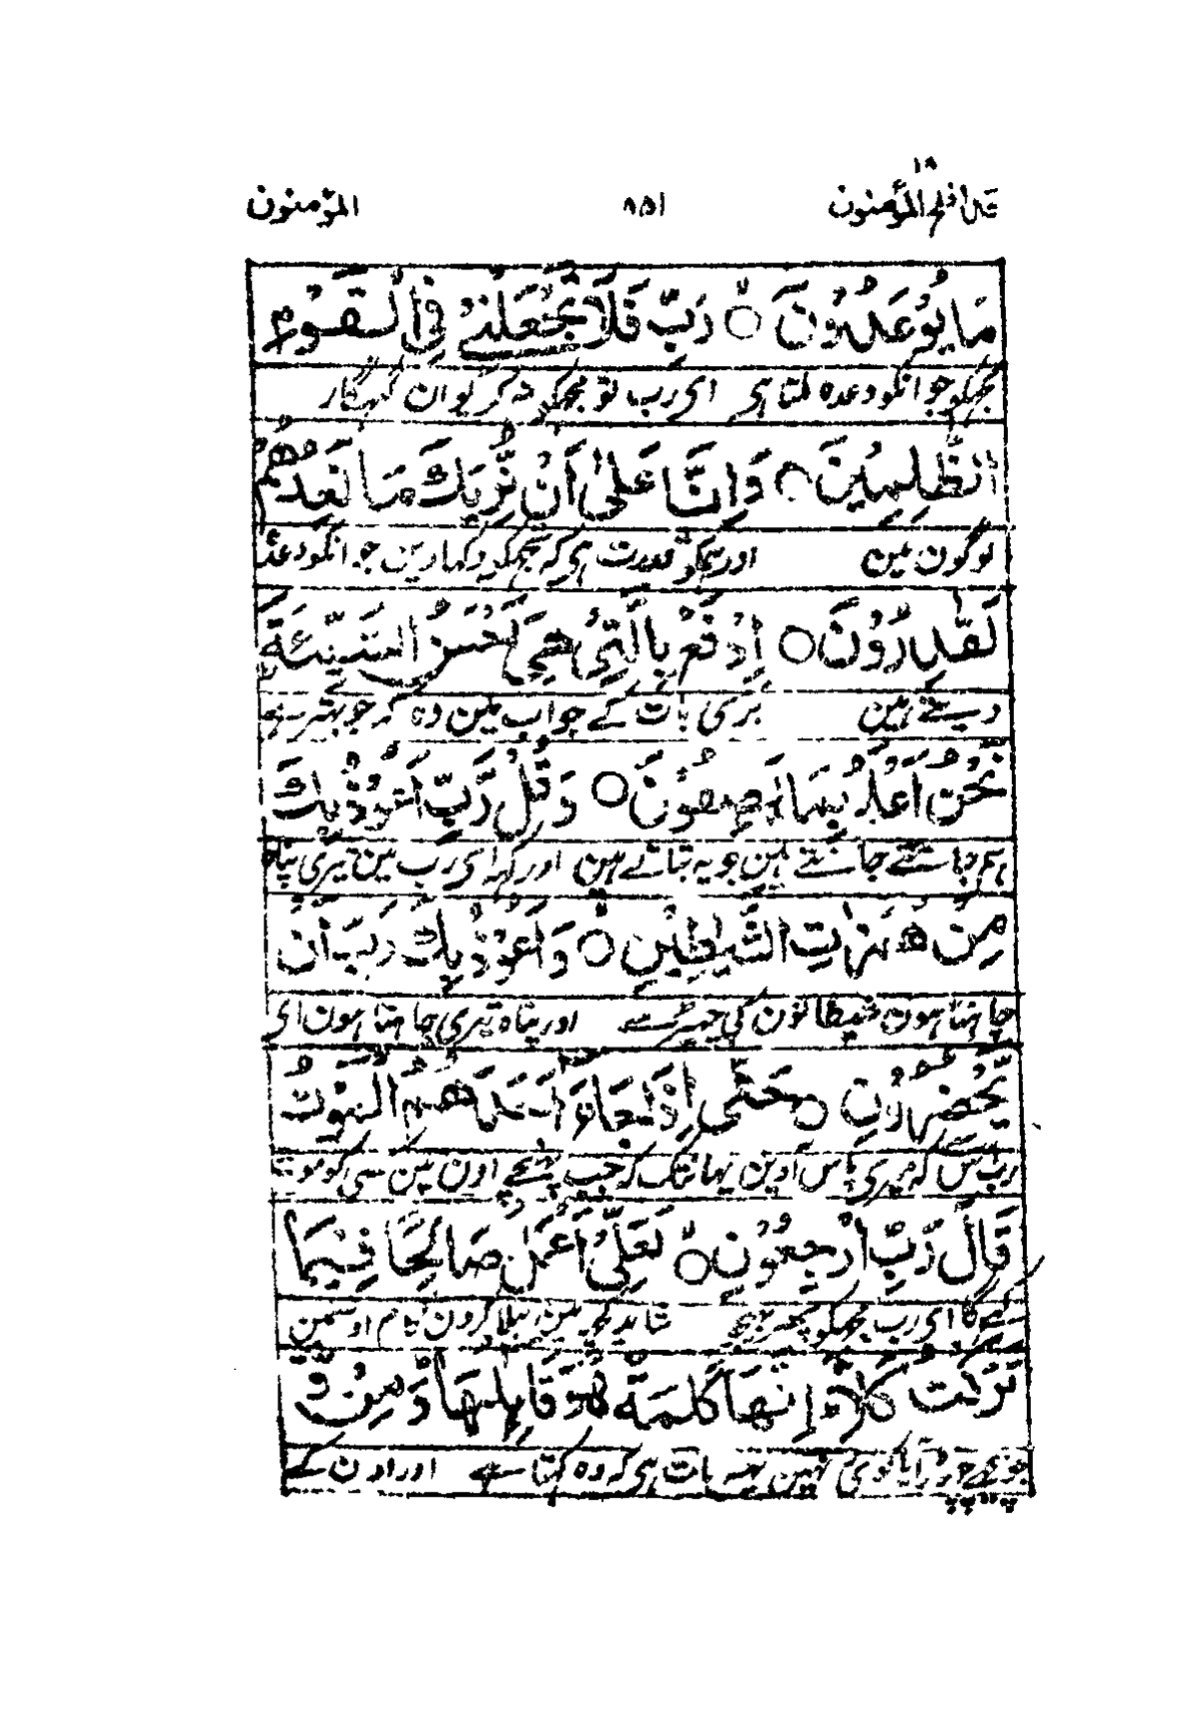 ۱۸
قد افلح المؤمنون ۸۵۱ المؤمنون
مَا يُوعَدُونَ ○ رَبِّ فَلَا تَجْعَلْنِي فِي الْقَوْمِ
مجھکو جو انکو وعدہ ملتا ہی ای رب تو مجھکو نہ کریو ان گنہگار
الظّٰلِمِينَ ○ وَإِنَّا عَلٰى أَنْ نُّرِيَكَ مَا نَعِدُهُمْ
لوگون مین اور ہمکو قدرت ہی کہ تجھکو دکھا دین جو انکو وعدہ
لَقٰدِرُوْنَ ○ اِدْفَعْ بِالَّتِيْ هِيَ أَحْسَنُ السَّيِّئَةَ
دیتے ہین بری بات کے جواب مین وہ کہہ جو بہتر ہے
نَحْنُ أَعْلَمُ بِمَا يَصِفُوْنَ ○ وَقُلْ رَّبِّ أَعُوْذُ بِكَ
ہم خوب جانتے ہین جو یہ بتاتے ہین اور کہہ ای رب مین تیری پناہ
مِنْ هَمَزٰتِ الشَّيٰطِيْنِ ○ وَأَعُوْذُ بِكَ رَبِّ أَنْ
چاہتا ہون شیطانون کی چھیڑ سے اور پناہ تیری چاہتا ہون ای
يَّحْضُرُوْنِ ○ حَتّٰى إِذَا جَاءَ أَحَدَهُمُ الْمَوْتُ
رب اس کہ میری پاس آوین یہانتک کہ جب پہنچے اون مین کسی کو موت
قَالَ رَبِّ ارْجِعُوْنِ ○ لَعَلِّيْ أَعْمَلُ صَالِحًا فِيْمَا
کہے گا ای رب مجھکو پھر بھیج شاید کچھ مین بھلا کرون کام اوسمین
تَرَكْتُ كَلَّا إِنَّهَا كَلِمَةٌ هُوَ قَائِلُهَا وَمِنْ وَّ
جو پیچھے چھوڑ آیا کوئی نہین یہہ بات ہی کہ وہ کہتا ہے اور اون کے